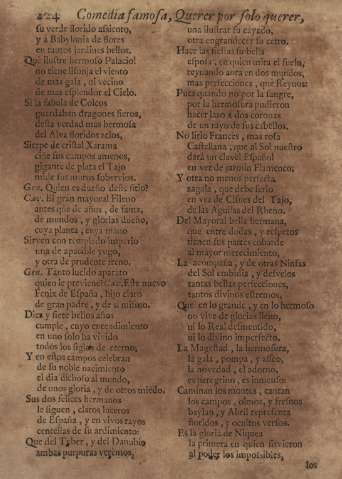 424 Comedia famosa, Querer por solo querer,
su verde florido assiento,
y a Babylonia de flores
en tantos jardines bellos.
Que ilustre hermoso Palacio!
no tiene lisonja el viento
de mas gala, ni vezino
de mas esplendor el Cielo.
Si la fabula de Colcos
guardaban dragones fieros,
desta verdad mas hermosa
del Alva floridos zelos,
Sierpe de cristal Xarama
ciñe sus campos amenos,
gigante de plata el Tajo
mide sus muros sobervios.
Gen. Quien es dueño deste sitio?
Cav. El gran mayoral Fileno
antes que de años, de fama,
de mundos, y glorias dueño,
cuya planta, cuya mano
Sirven con templado imperio
una de apacible yugo,
y otra de prudente freno.
Gen. Tanto lucido aparato
quien le previene? Cav. Este nuevo
Fenix de España, hijo claro
de gran padre, y de si mismo.
Diez y siete bellos años
cumple, cuyo entendimiento
en uno solo ha vivido
todos los siglos de eterno;
Y en estos campos celebran
de su noble nacimiento
el dia dichoso al mundo,
de unos gloria, y de otros miedo.
Sus dos felices hermanos
le siguen, claros luceros
de España, y en vivos rayos
centellas de su ardimiento:
Que del Tiber, y del Danubio
ambas purpuras vezinos,
una ilustrar su cayado,
otra engrandecer su cetro.
Hace las fiestas su bella
esposa, en quien mira el suelo,
reynando aora en dos mundos,
mas perfecciones, que Reynos:
Pues quando no por la sangre,
por la hermosura pudieron
hacer lazo a dos coronas
de un rayo de sus cabellos.
No lirio Frances, mas rosa
Castellana, que al Sol nuestro
dará un clavel Español
en vez de jazmin Flamenco;
Y otra no menos perfecta
zagala, que debe serlo
en vez de Cisnes del Tajo,
de las Aguilas del Rheno.
Del Mayoral bella hermana,
que entre dudas, y respetos
tienen sus partes cobarde
al mayor merecimiento,
La acompaña, y de otras Ninfas
del Sol embidia, y desvelos
tantas bellas perfecciones,
tantos divinos estremos,
Que en lo grande, y en lo hermoso
no vive de glorias lleno,
ni lo Real desmentido,
ni lo divino imperfecto.
La Magestad, la hermosura,
la gala, pompa, y asseo,
la novedad, el adorno,
es peregrino, es inmenso:
Caminan los montes, cantan
los campos, olmos, y fresnos
baylan, y Abril representa
floridos, y ocultos versos.
Es la gloria de Niquea
la primera en quien sirvieron
al poder los impossibles,
los